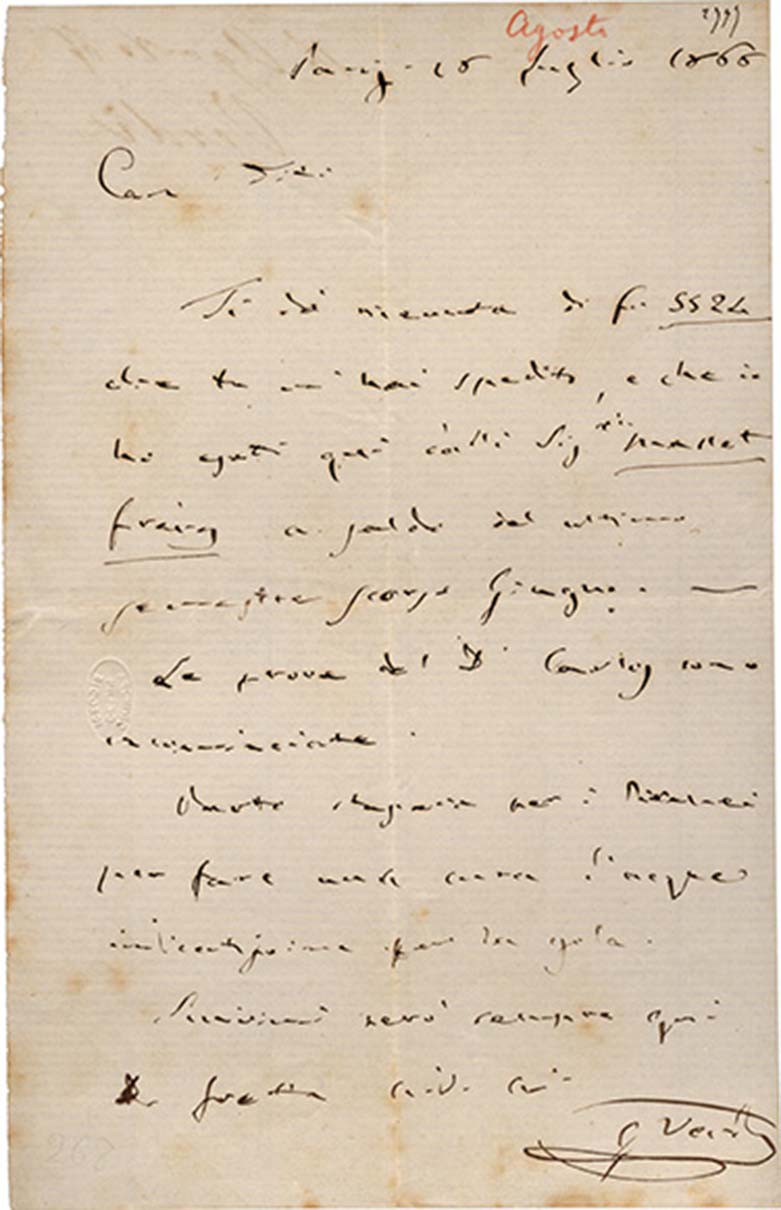 Agosto
Parigi 18 Luglio 1866
Car Tito
Ti do ricevuta di fri 5524
che tu mi hai spedito, e che io
ho qui dalli Sigri
frères a saldo del ultimo
semestre scorso Giugno. —
Le prove del D. Carlos sono
incominciate.
Parto stasera per i Pirenei
per fare una cura d'acque
per la gola.
Scrivimi però sempre qui
In fretta addio addio
G Verdi
268